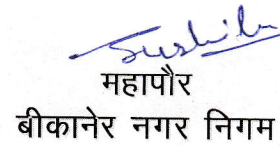 Sushila
महापौर
बीकानेर नगर निगम